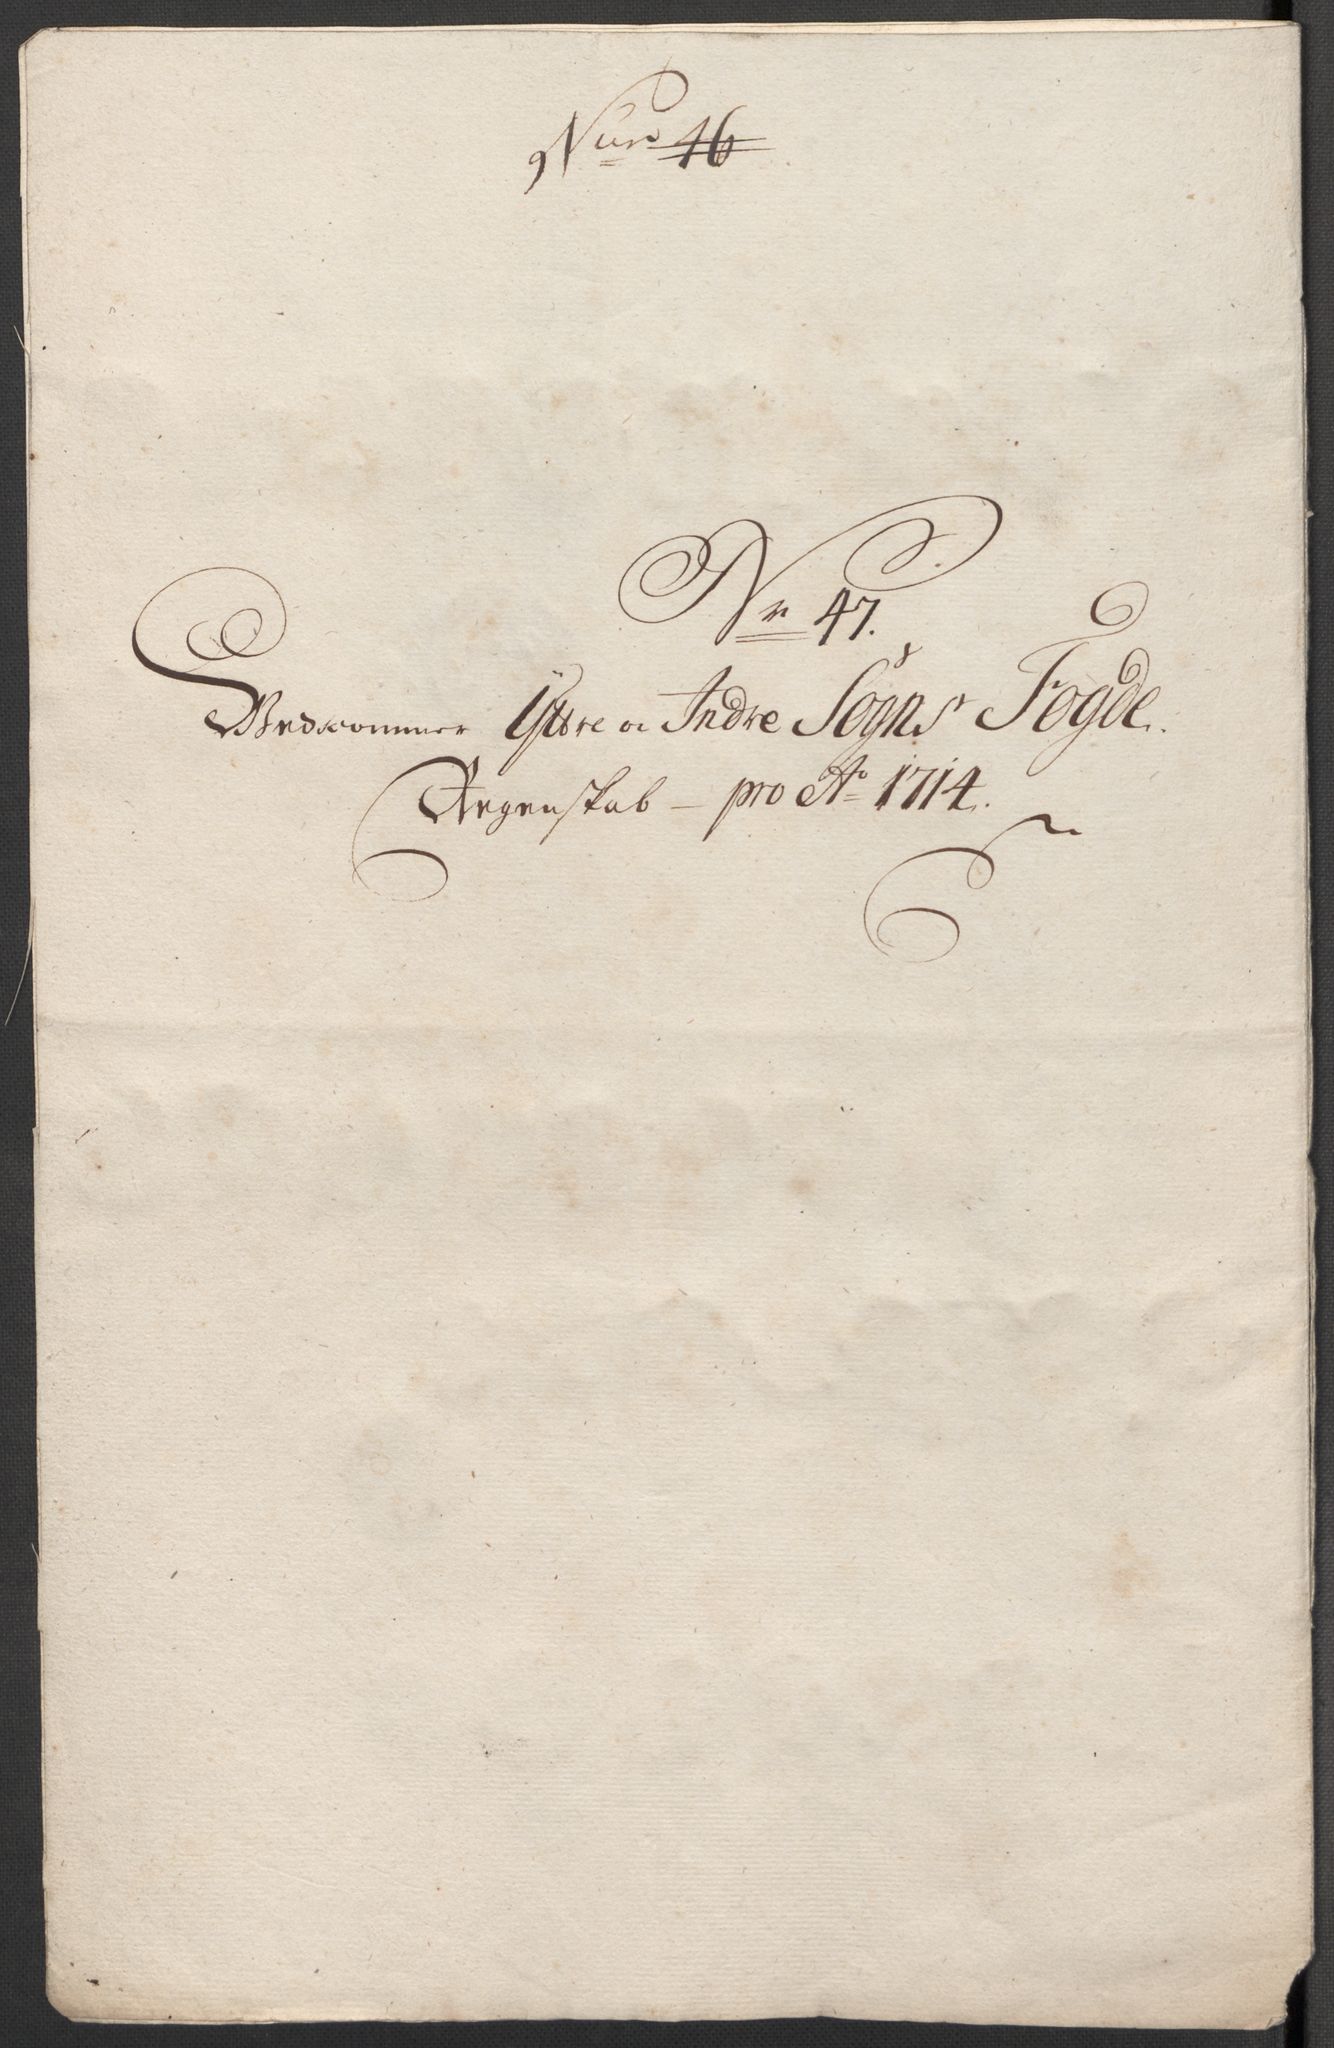 Num 46
Nr 47.
Vedkommer Yttre oc Indre Sogns Fogde.
Regenskab – pro Ao 1714.